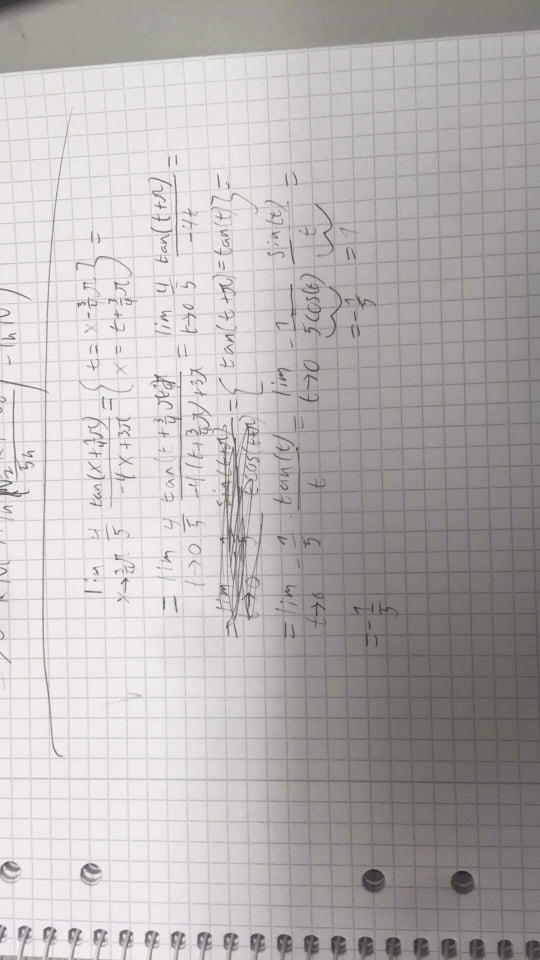 5n
lim_{x→3/4π} 4/5 tan(x+1/4π)/(-4x+3π) = { t = x-3/4π, x = t+3/4π } =
= lim_{t→0} 4/5 tan(t+3/4π+1/4π)/(-4(t+3/4π)+3π) = lim_{t→0} 4/5 tan(t+π)/(-4t) =
= { tan(t+π) = tan(t) } =
= lim_{t→0} -1/5 · tan(t)/t = lim_{t→0} -1/(5cos(t)) sin(t)/t =
=-1/5 =1
=-1/5